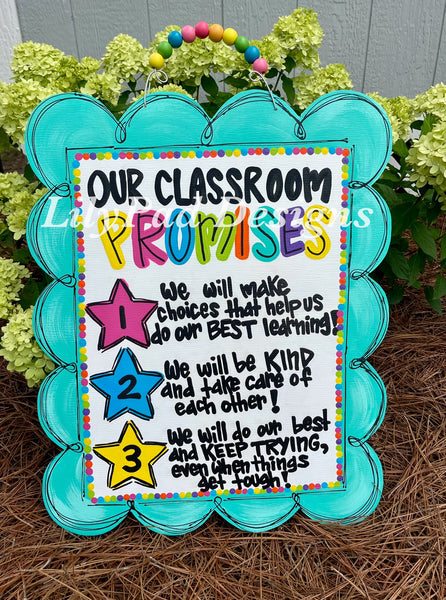 OUR CLASSROOM
PROMISES
LilyPad Designs
1
We will make
choices that help us
do our BEST learning!
2
We will be KIND
and take care of
each other!
3
We will do our best
and KEEP TRYING,
even when things
get tough!